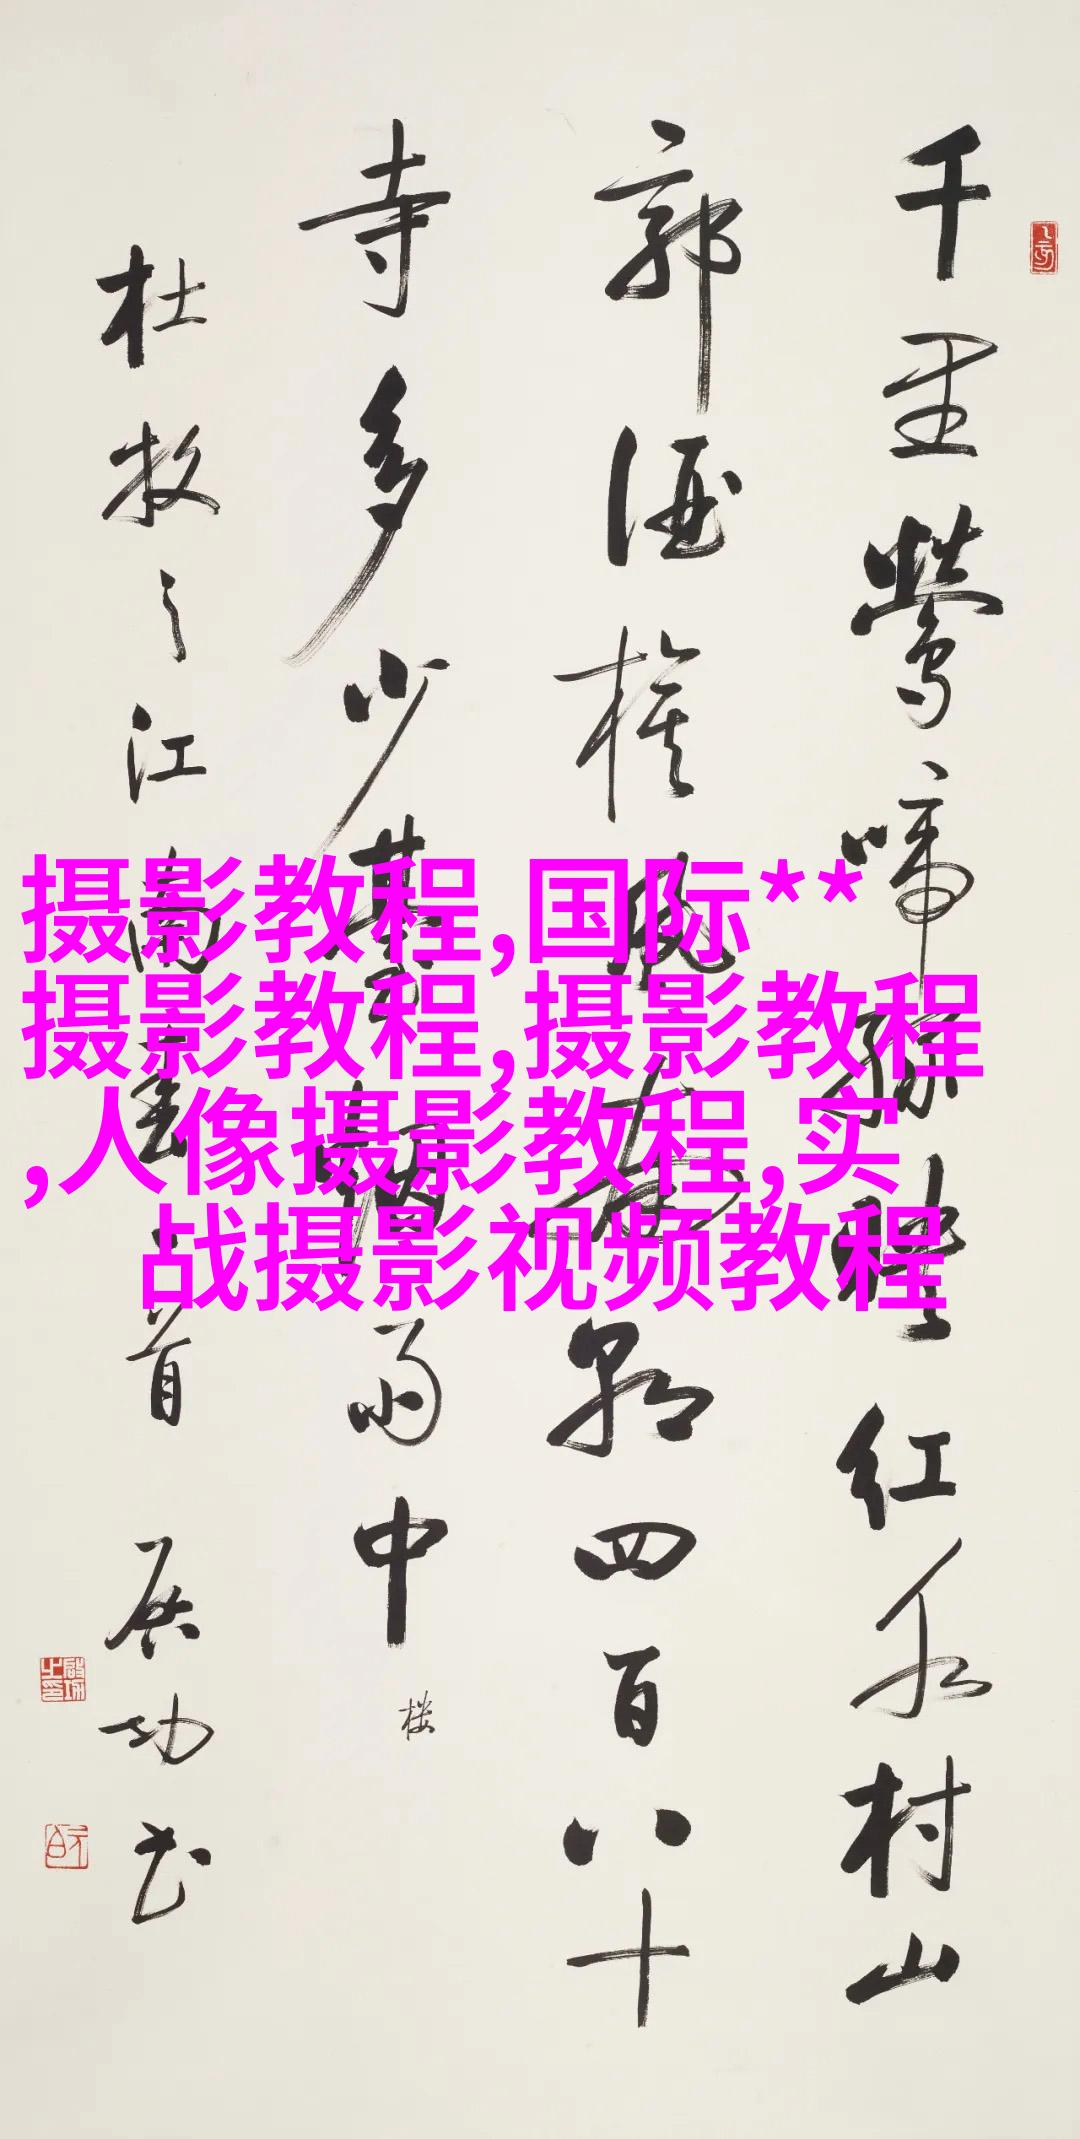 千里鶯啼緑映红水村山
郭酒旗風南朝四百八十
寺多少臺烟雨中
楼
杜牧之江南春一首 启功书
摄影教程,国际**
摄影教程,摄影教程
,人像摄影教程,实
战摄影视频教程